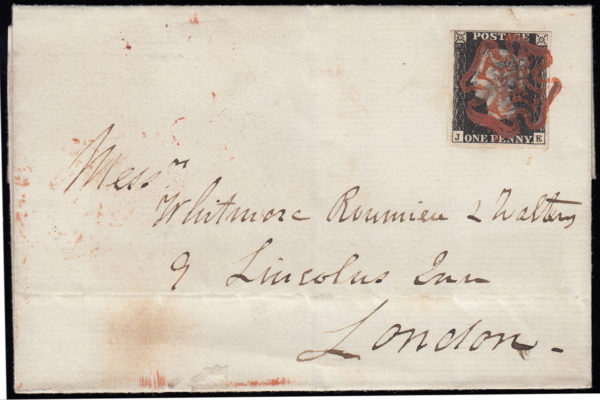 POSTAGE
J ONE PENNY E
Messrs
Whitmore Roumieu & Walters
9 Lincolns Inn
London.